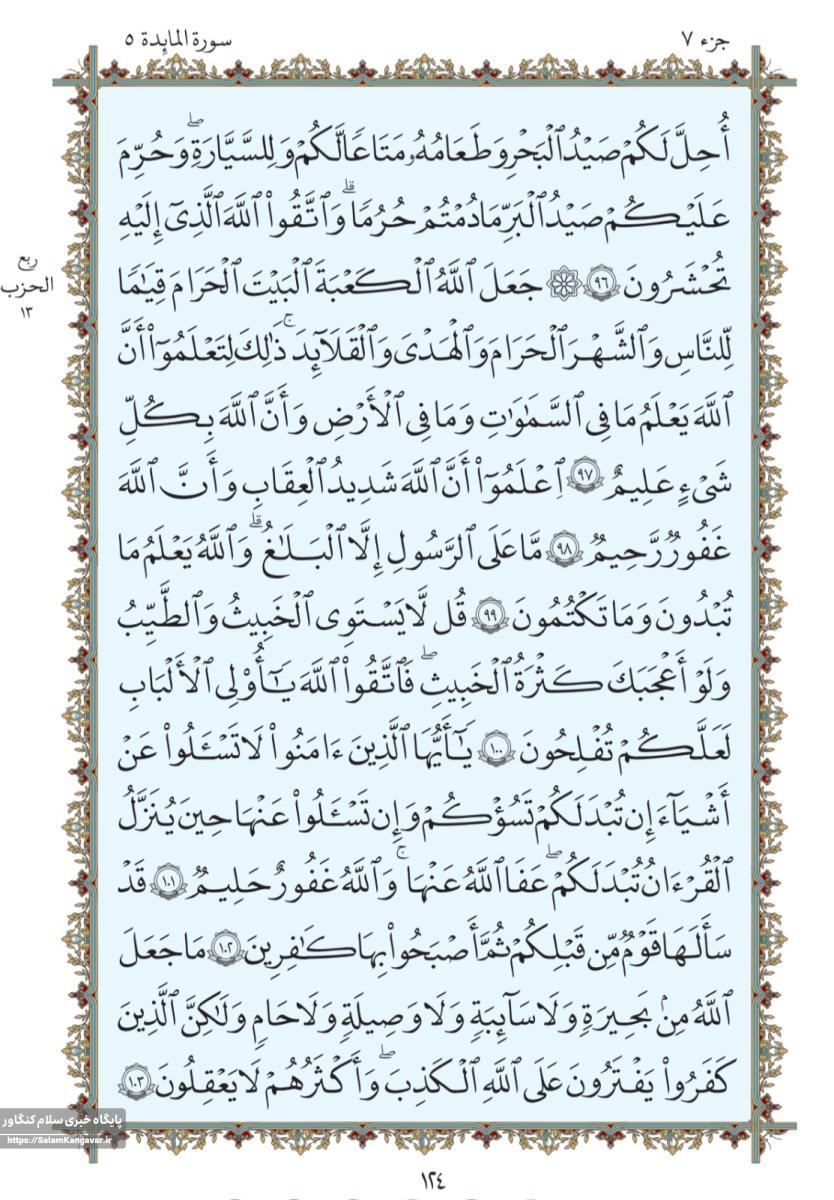 جزء ٧
سورة المائدة ٥
أُحِلَّ لَكُمْ صَيْدُ ٱلْبَحْرِ وَطَعَامُهُۥ مَتَـٰعًا لَّكُمْ وَلِلسَّيَّارَةِ ۖ وَحُرِّمَ
عَلَيْكُمْ صَيْدُ ٱلْبَرِّ مَا دُمْتُمْ حُرُمًا ۗ وَٱتَّقُوا۟ ٱللَّهَ ٱلَّذِىٓ إِلَيْهِ
تُحْشَرُونَ ٩٦ ۞ جَعَلَ ٱللَّهُ ٱلْكَعْبَةَ ٱلْبَيْتَ ٱلْحَرَامَ قِيَـٰمًا
لِّلنَّاسِ وَٱلشَّهْرَ ٱلْحَرَامَ وَٱلْهَدْىَ وَٱلْقَلَـٰٓئِدَ ۚ ذَٰلِكَ لِتَعْلَمُوٓا۟ أَنَّ
ٱللَّهَ يَعْلَمُ مَا فِى ٱلسَّمَـٰوَٰتِ وَمَا فِى ٱلْأَرْضِ وَأَنَّ ٱللَّهَ بِكُلِّ
شَىْءٍ عَلِيمٌ ٩٧ ٱعْلَمُوٓا۟ أَنَّ ٱللَّهَ شَدِيدُ ٱلْعِقَابِ وَأَنَّ ٱللَّهَ
غَفُورٌ رَّحِيمٌ ٩٨ مَّا عَلَى ٱلرَّسُولِ إِلَّا ٱلْبَلَـٰغُ ۗ وَٱللَّهُ يَعْلَمُ مَا
تُبْدُونَ وَمَا تَكْتُمُونَ ٩٩ قُل لَّا يَسْتَوِى ٱلْخَبِيثُ وَٱلطَّيِّبُ
وَلَوْ أَعْجَبَكَ كَثْرَةُ ٱلْخَبِيثِ ۖ فَٱتَّقُوا۟ ٱللَّهَ يَـٰٓأُو۟لِى ٱلْأَلْبَـٰبِ
لَعَلَّكُمْ تُفْلِحُونَ ١٠٠ يَـٰٓأَيُّهَا ٱلَّذِينَ ءَامَنُوا۟ لَا تَسْـَٔلُوا۟ عَنْ
أَشْيَآءَ إِن تُبْدَ لَكُمْ تَسُؤْكُمْ وَإِن تَسْـَٔلُوا۟ عَنْهَا حِينَ يُنَزَّلُ
ٱلْقُرْءَانُ تُبْدَ لَكُمْ ۖ عَفَا ٱللَّهُ عَنْهَا ۚ وَٱللَّهُ غَفُورٌ حَلِيمٌ ١٠١ قَدْ
سَأَلَهَا قَوْمٌ مِّن قَبْلِكُمْ ثُمَّ أَصْبَحُوا۟ بِهَا كَـٰفِرِينَ ١٠٢ مَا جَعَلَ
ٱللَّهُ مِنۢ بَحِيرَةٍ وَلَا سَآئِبَةٍ وَلَا وَصِيلَةٍ وَلَا حَامٍ وَلَـٰكِنَّ ٱلَّذِينَ
كَفَرُوا۟ يَفْتَرُونَ عَلَى ٱللَّهِ ٱلْكَذِبَ ۖ وَأَكْثَرُهُمْ لَا يَعْقِلُونَ ١٠٣
ربع
الحزب
١٣
پایگاه خبری سلام کنگاور
https://SalamKangavar.ir
١٢٤